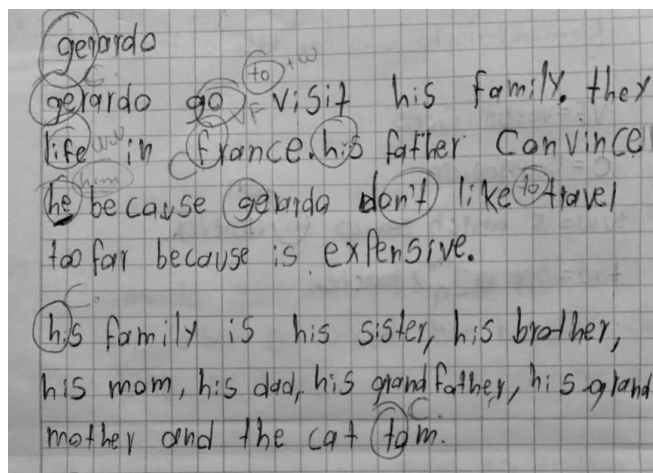 gerardo
C. to +w
gerardo go visit his family. they
VF
life ww in france. his father Convince
C
him
he because gerardo don't like to travel
too far because is expensive.
C.
his family is his sister, his brother,
his mom, his dad, his grandfather, his grand
C.
mother and the cat tom.